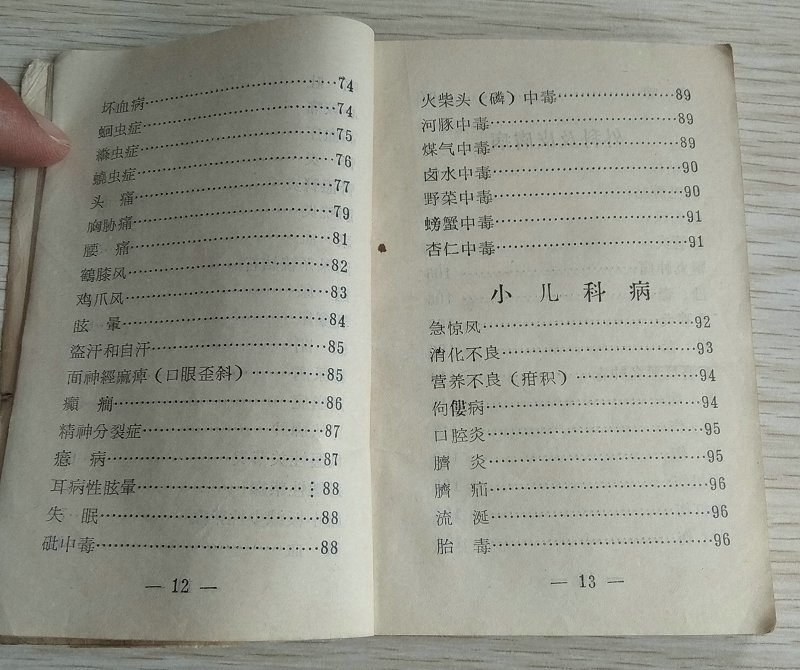 坏血病……………………74
蛔虫症……………………74
絲虫症……………………75
蟯虫症……………………76
头 痛……………………77
胸胁痛……………………79
腰 痛……………………81
鶴膝风……………………82
鸡爪风……………………83
眩 暈……………………84
盜汗和自汗……………………85
面神經麻痺（口眼歪斜）……………………85
癲 癇……………………86
精神分裂症……………………87
癔 病……………………87
耳病性眩暈……………………88
失 眠……………………88
砒中毒……………………88
— 12 —
火柴头（磷）中毒……………………89
河豚中毒……………………89
煤气中毒……………………89
卤水中毒……………………90
野菜中毒……………………90
螃蟹中毒……………………91
杏仁中毒……………………91
小儿科病
急惊风……………………92
消化不良……………………93
营养不良（疳积）……………………94
佝僂病……………………94
口腔炎……………………95
臍 炎……………………95
臍 疝……………………96
流 涎……………………96
胎 毒……………………96
— 13 —